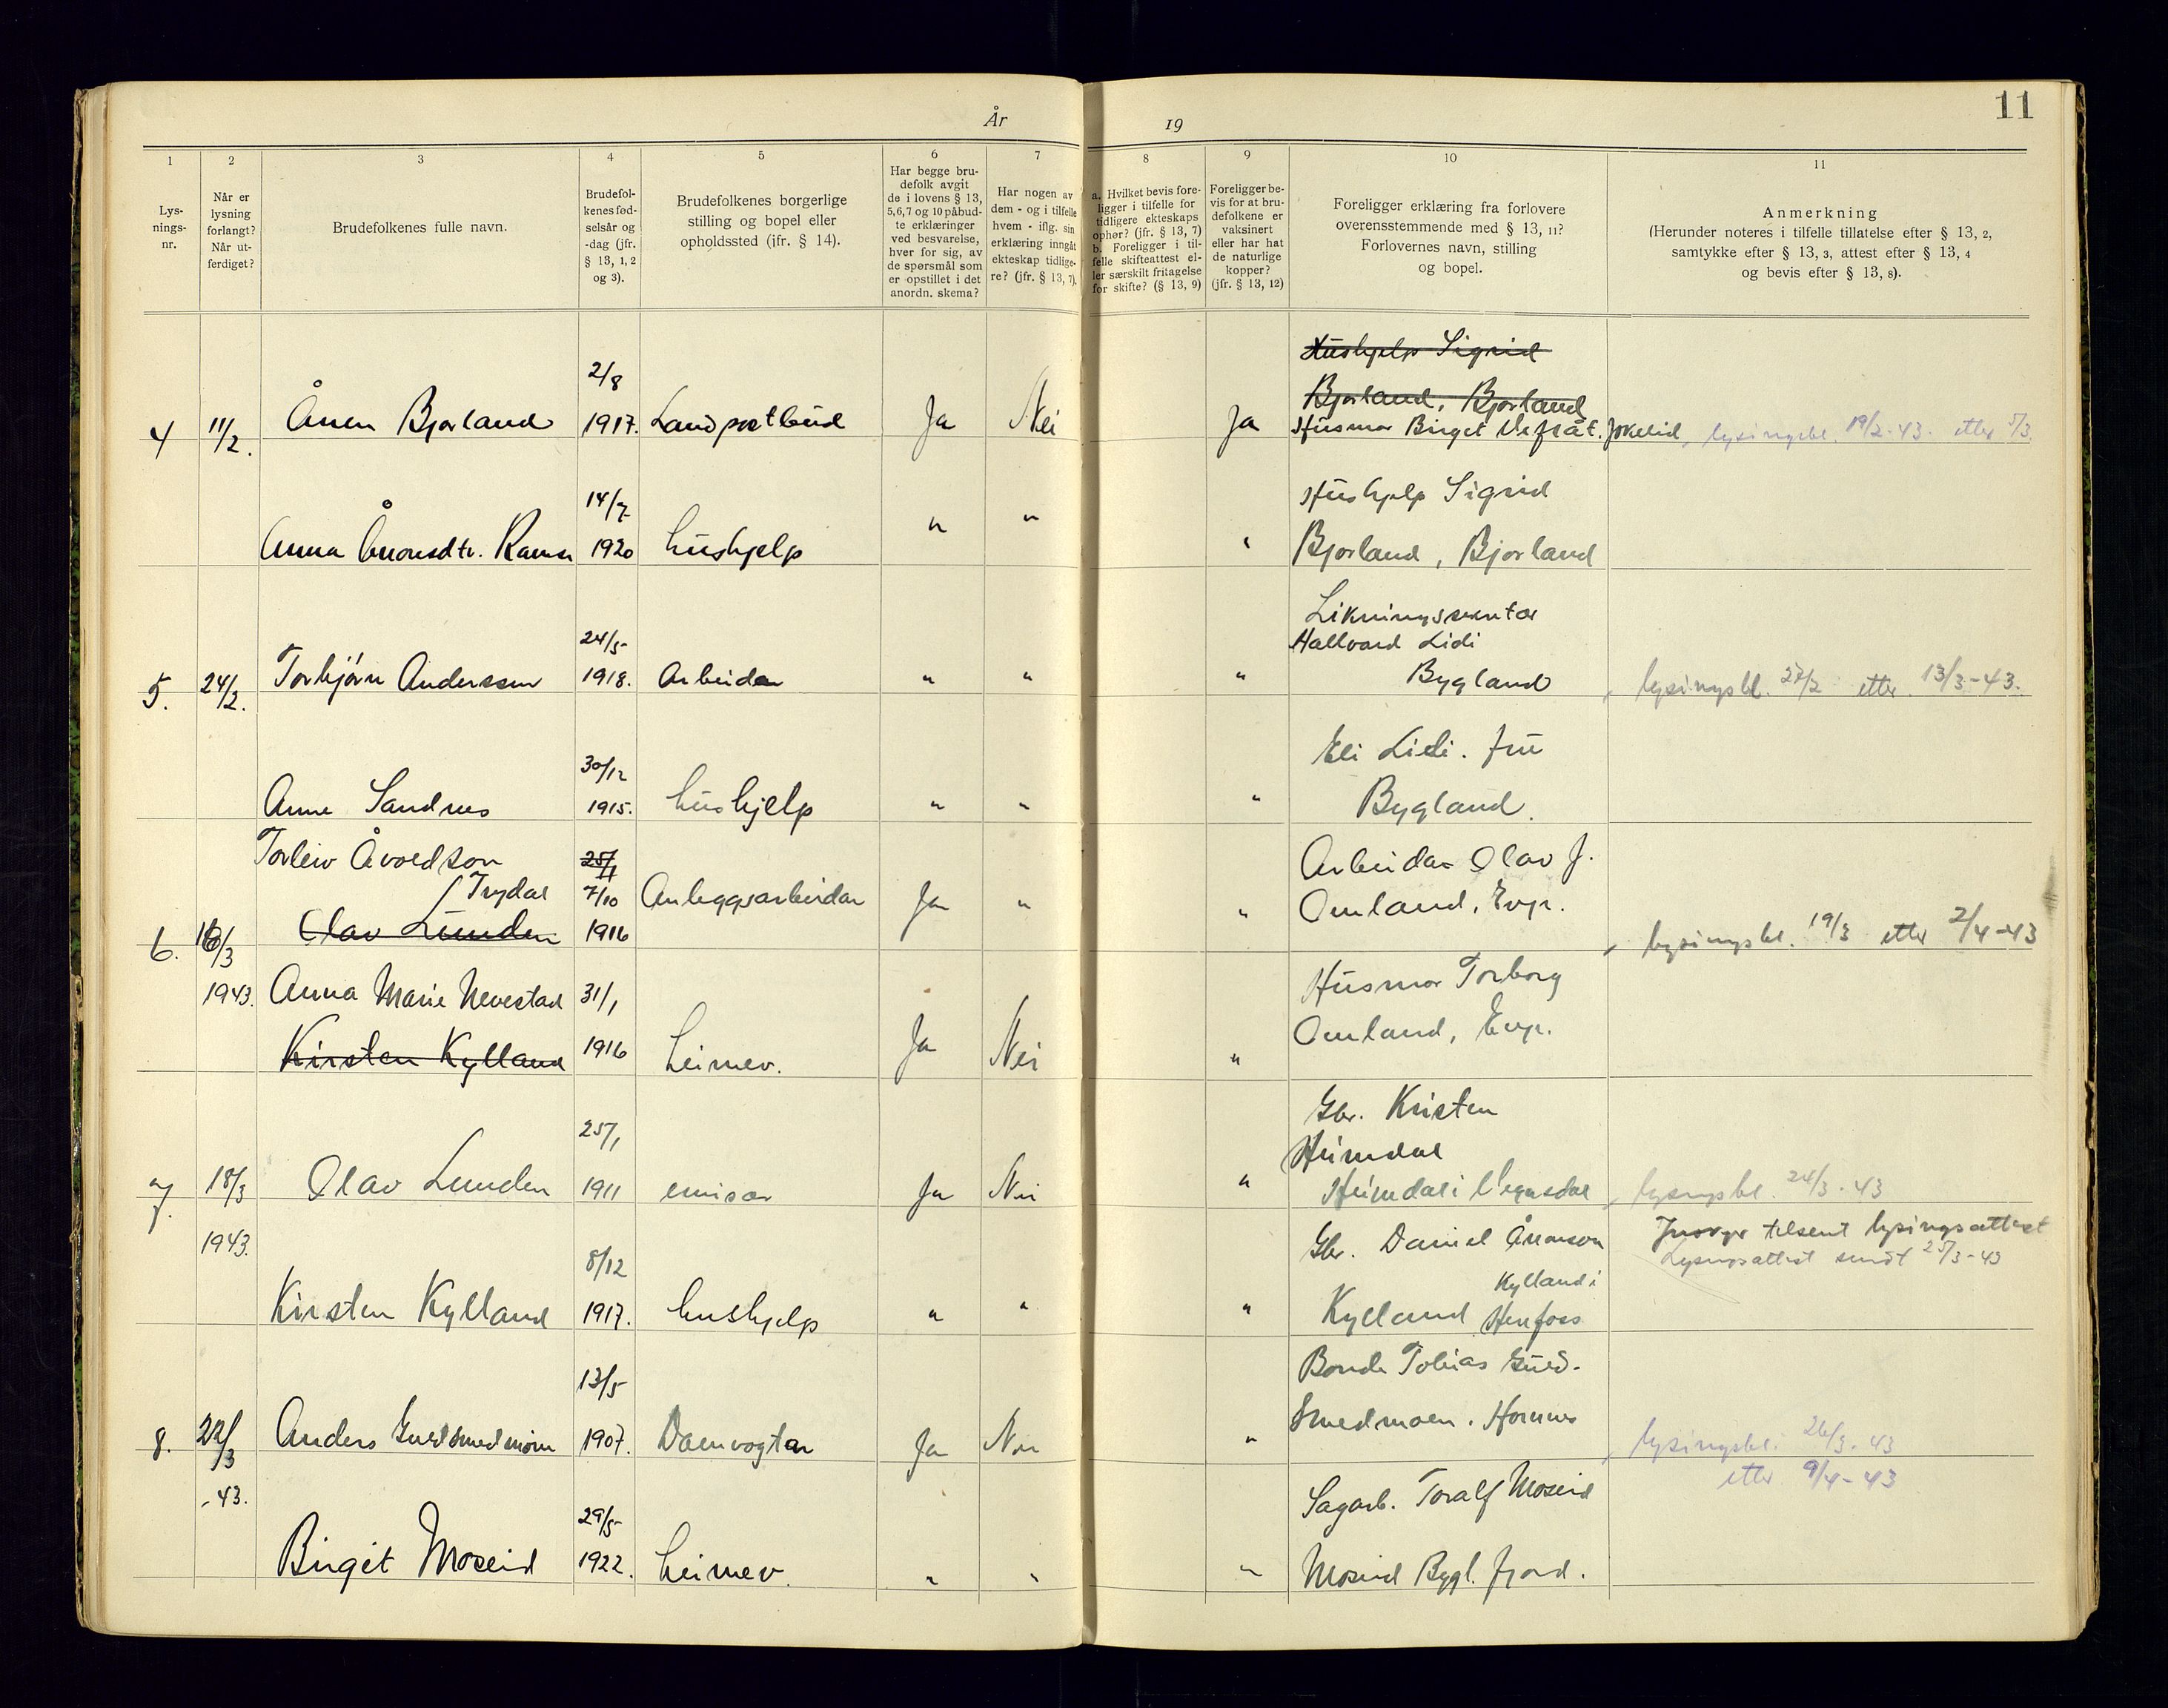 År 19
11
1
Lys-
nings-
nr.
2
Når er
lysning
forlangt?
Når ut-
ferdiget?
3
Brudefolkenes fulle navn.
4
Brudefol-
kenes fød-
selsår og
-dag (jfr.
§ 13, 1, 2
og 3).
5
Brudefolkenes borgerlige
stilling og bopel eller
opholdssted (ifr. § 14).
6
Har begge bru-
defolk avgit
de i lovens § 13,
5,6,7 og 10 påbud-
te erklæringer
ved besvarelse,
hver for sig, av
de spørsmål som
er opstillet i det
anordn. skema?
7
Har nogen av
dem - og i tilfelle
hvem - iflg. sin
erklæring inngåt
ekteskap tidlige-
re? (jfr. § 13, 7).
8
a. Hvilket bevis fore-
ligger i tilfelle for
tidligere ekteskaps
ophør? (jfr. § 13, 7)
b. Foreligger i til-
felle skifteattest el-
ler særskilt fritagelse
for skifte? (§ 13, 9)
9
Foreligger be-
vis for at bru-
defolkene er
vaksinert
eller har hat
de naturlige
kopper?
(jfr. § 13, 12)
10
Foreligger erklæring fra forlovere
overensstemmende med § 13, 11?
Forlovernes navn, stilling
og bopel.
11
Anmerkning
(Herunder noteres i tilfelle tillatelse efter § 13, 2,
samtykke efter § 13, 3, attest efter § 13, 4
og bevis efter § 13, 8).
Hushjelp Sigrid
2/8
Bjorland, Bjorland
4 11/2. Ånen Bjorland 1917. Landpostbud Ja Nei Ja Husmor Birget Jokelid, lysingsbl. 19/2-43. etter 5/3.
14/7 Hushjelp Sigrid
Anna 1920 hushjelp " " " Bjorland, Bjorland
Hallvard Lidi
24/5
5. 24/2. Torbjørn Anderssen 1918. Arbeidar " " " Bygland lysingsbl. 27/2 etter 13/3-43.
30/12 Eli Lidi. fru
Anne Sandnes 1915. hushjelp " " " Bygland.
Torleiv Åvoldson 25/11 Arbeidar Olav J.
Trydal 7/10 Anleggsarbeidar Ja " " Omland, Evje.
6. /3 Olav Lunden 1916 lysingsbl. 19/3 etter 2/4-43
1943. Anna Marie Nevestad 31/1 Husmor Torborg
Kirsten Kylland 1916 heimev. Ja Nei " Omland, Evje.
25/1 Gbr. Kristen
Heimdal
7. 18/3 Olav Lunden 1911 emisær Ja Nei " Heimdal i Vegusdal lysingsbl. 24/3-43
1943. 8/12 Gbr. Daniel Ånonson tilsent lysingsattest
Lysingsattest sendt 25/3-43
Kylland i
Kirsten Kylland 1917. hushjelp " " " Kylland
13/5 Bonde Tobias Gurd.
8. 22/3 Anders 1907. Damvogtar Ja Nei " Smedmoen. Hornnes lysingsbl. 26/3-43
-43. 29/5 Sagarb. Toralf Moseid etter 9/4-43
Birgit Moseid 1922. heimev. " " " Moseid Bygl. fjord.